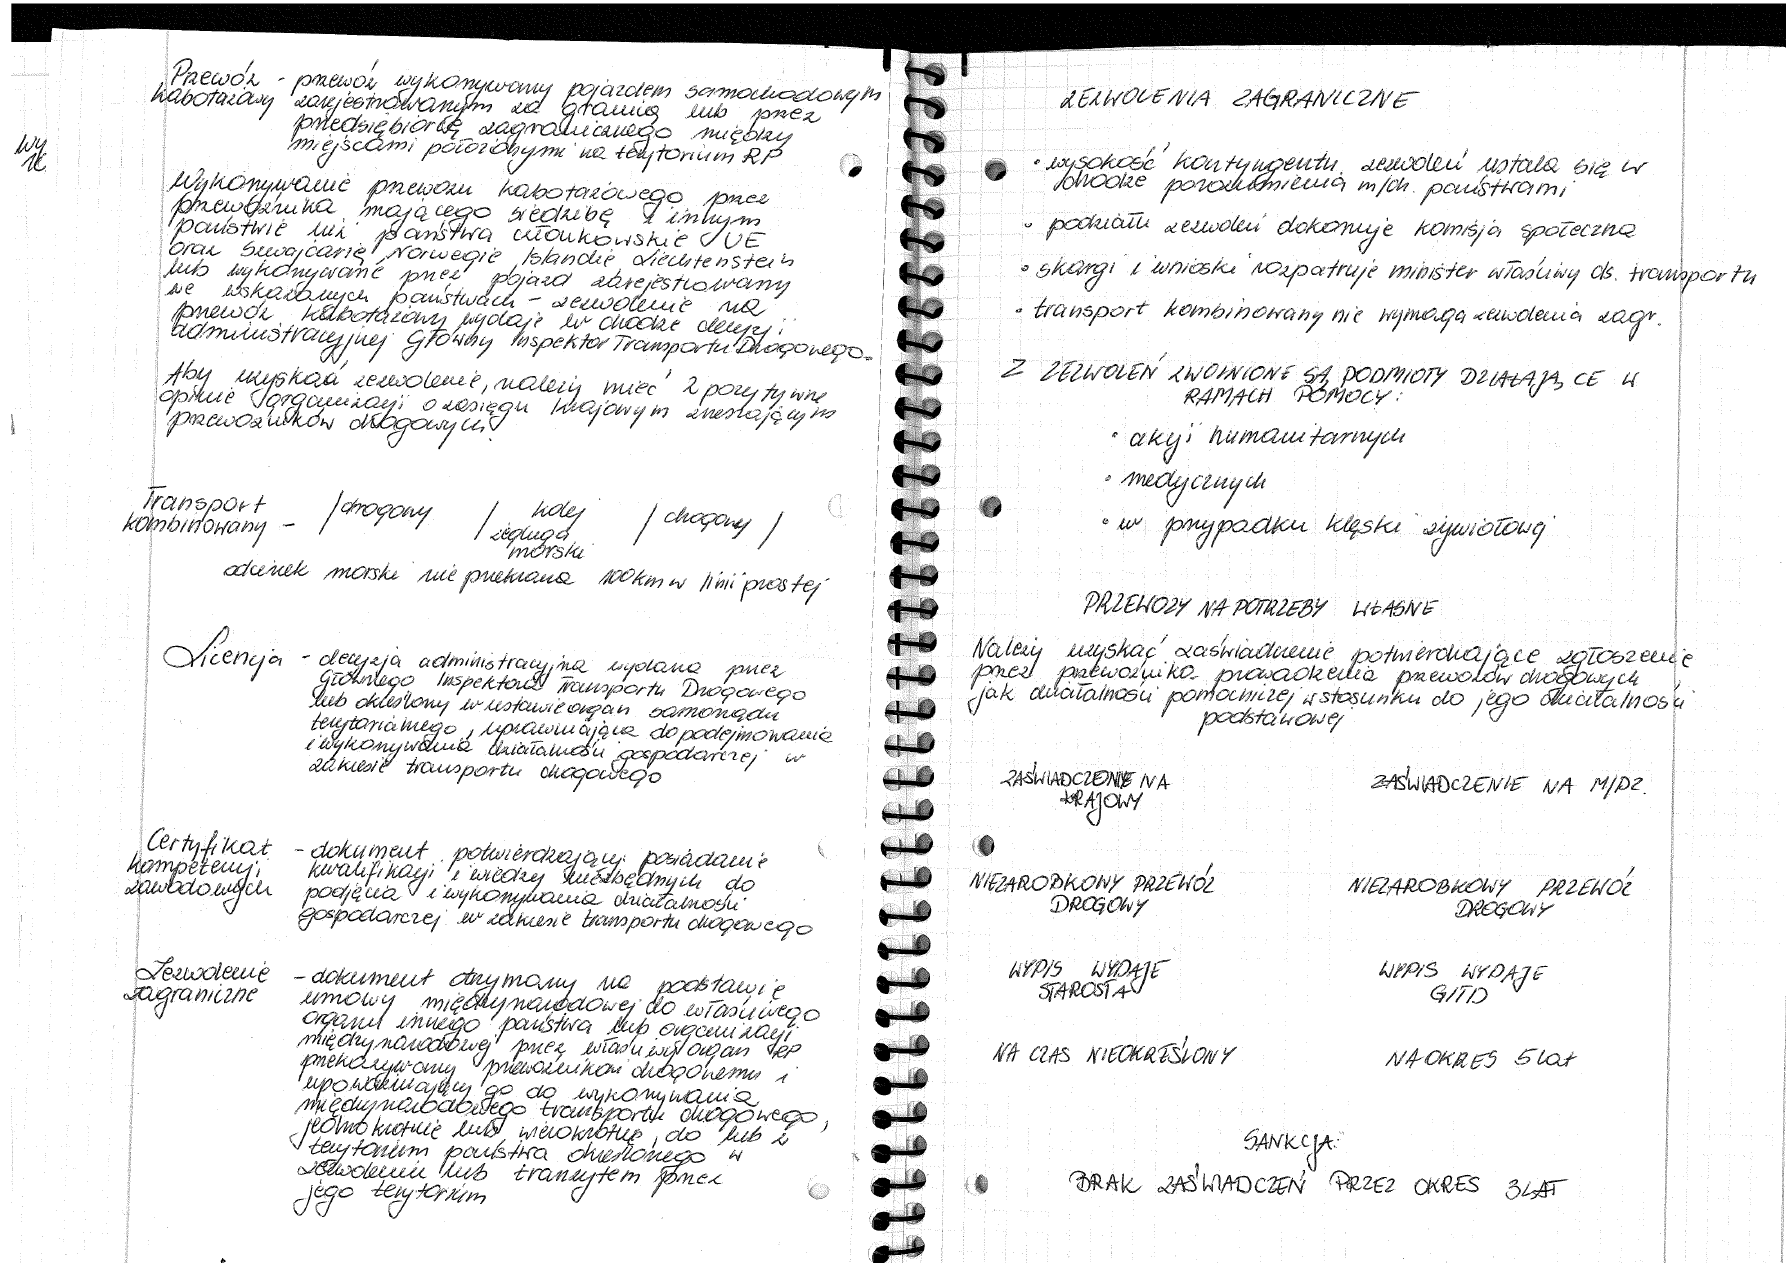 Przewóz - przewóz wykonywany pojazdem samochodowym
kabotażowy zarejestrowanym za granicą lub przez
przedsiębiorcę zagranicznego między
miejscami położonymi na terytorium RP
Wykonywanie przewozu kabotażowego przez
przewoźnika mającego siedzibę z innym
państwie niż państwa członkowskie UE
oraz Szwajcarię, Norwegię, Islandię, Liechtenstein
lub wykonywanie przez pojazd zarejestrowany
we wskazanych państwach - zezwolenie na
przewóz kabotażowy wydaje w drodze decyzji
administracyjnej Główny Inspektor Transportu Drogowego.
Aby uzyskać zezwolenie, należy mieć 2 pozytywne
opinie organizacji o zasięgu krajowym zrzeszającym
przewoźników drogowych.
Transport
kombinowany - / drogowy / kolej / drogowy /
żegluga
morski
odcinek morski nie przekracza 100km w linii prostej
Licencja - decyzja administracyjna wydana przez
Głównego Inspektora Transportu Drogowego
lub określony w ustawie organ samorządu
terytorialnego, uprawniająca do podejmowania
i wykonywania działalności gospodarczej w
zakresie transportu drogowego
Certyfikat - dokument potwierdzający posiadanie
kompetencji kwalifikacji i wiedzy niezbędnych do
zawodowych podjęcia i wykonywania działalności
gospodarczej w zakresie transportu drogowego
Zezwolenie - dokument otrzymany na podstawie
zagraniczne umowy międzynarodowej do właściwego
organu innego państwa lub organizacji
międzynarodowej przez właściwy organ RP
przekazywany przewoźnikowi drogowemu i
upoważniający go do wykonywania
międzynarodowego transportu drogowego,
jednokrotnie lub wielokrotnie, do lub z
terytorium państwa określonego w
zezwoleniu lub tranzytem przez
jego terytorium
ZEZWOLENIA ZAGRANICZNE
• wysokość kontyngentu zezwoleń ustala się w
drodze porozumienia m/dz. państwami
• podziału zezwoleń dokonuje komisja społeczna
• skargi i wnioski rozpatruje minister właściwy ds. transportu
• transport kombinowany nie wymaga zezwolenia zagr.
Z ZEZWOLEŃ ZWOLNIONE SĄ PODMIOTY DZIAŁAJĄCE W
RAMACH POMOCY:
• akcji humanitarnych
• medycznych
• w przypadku klęski żywiołowej
PRZEWOZY NA POTRZEBY WŁASNE
Należy uzyskać zaświadczenie potwierdzające zgłoszenie
przez przewoźnika prowadzenia przewozów drogowych
jak działalności pomocniczej w stosunku do jego działalności
podstawowej
ZAŚWIADCZENIE NA
KRAJOWY
ZAŚWIADCZENIE NA M/DZ.
NIEZAROBKOWY PRZEWÓZ
DROGOWY
NIEZAROBKOWY PRZEWÓZ
DROGOWY
WYPIS WYDAJE
STAROSTA
WYPIS WYDAJE
GITD
NA CZAS NIEOKREŚLONY
NA OKRES 5 lat
SANKCJA:
BRAK ZAŚWIADCZEŃ PRZEZ OKRES 3 LAT